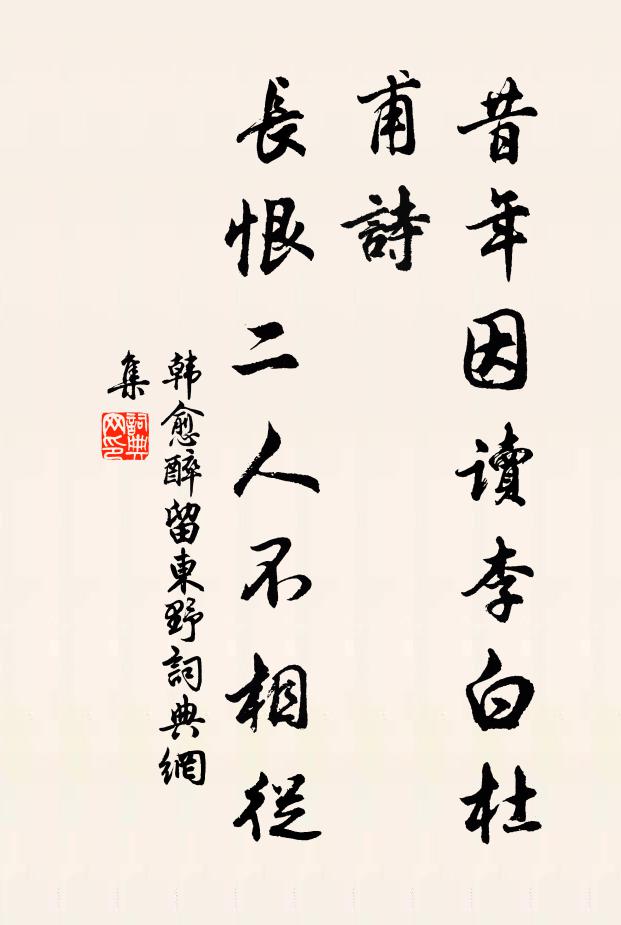 昔年因讀李白杜
甫詩
長恨二人不相從
韓愈醉留東野詞典網
集
詞典
网印